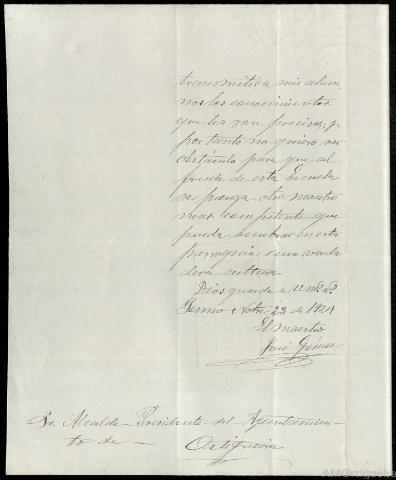 transmitir a mis alum-
nos los conocimientos
que les son precisos; y
por tanto no quiero ser
obstáculo para que al
frente de esta Escuela
se ponga otro maestro
mas competente que
pueda sembrar en esta
parroquia una verda
dera cultura.
Dios guarde a V. m.s a.s
23 de 1924
El maestro
José Gómez
Sr. Alcalde-Presidente del Ayuntamien-
to de Ortigueira